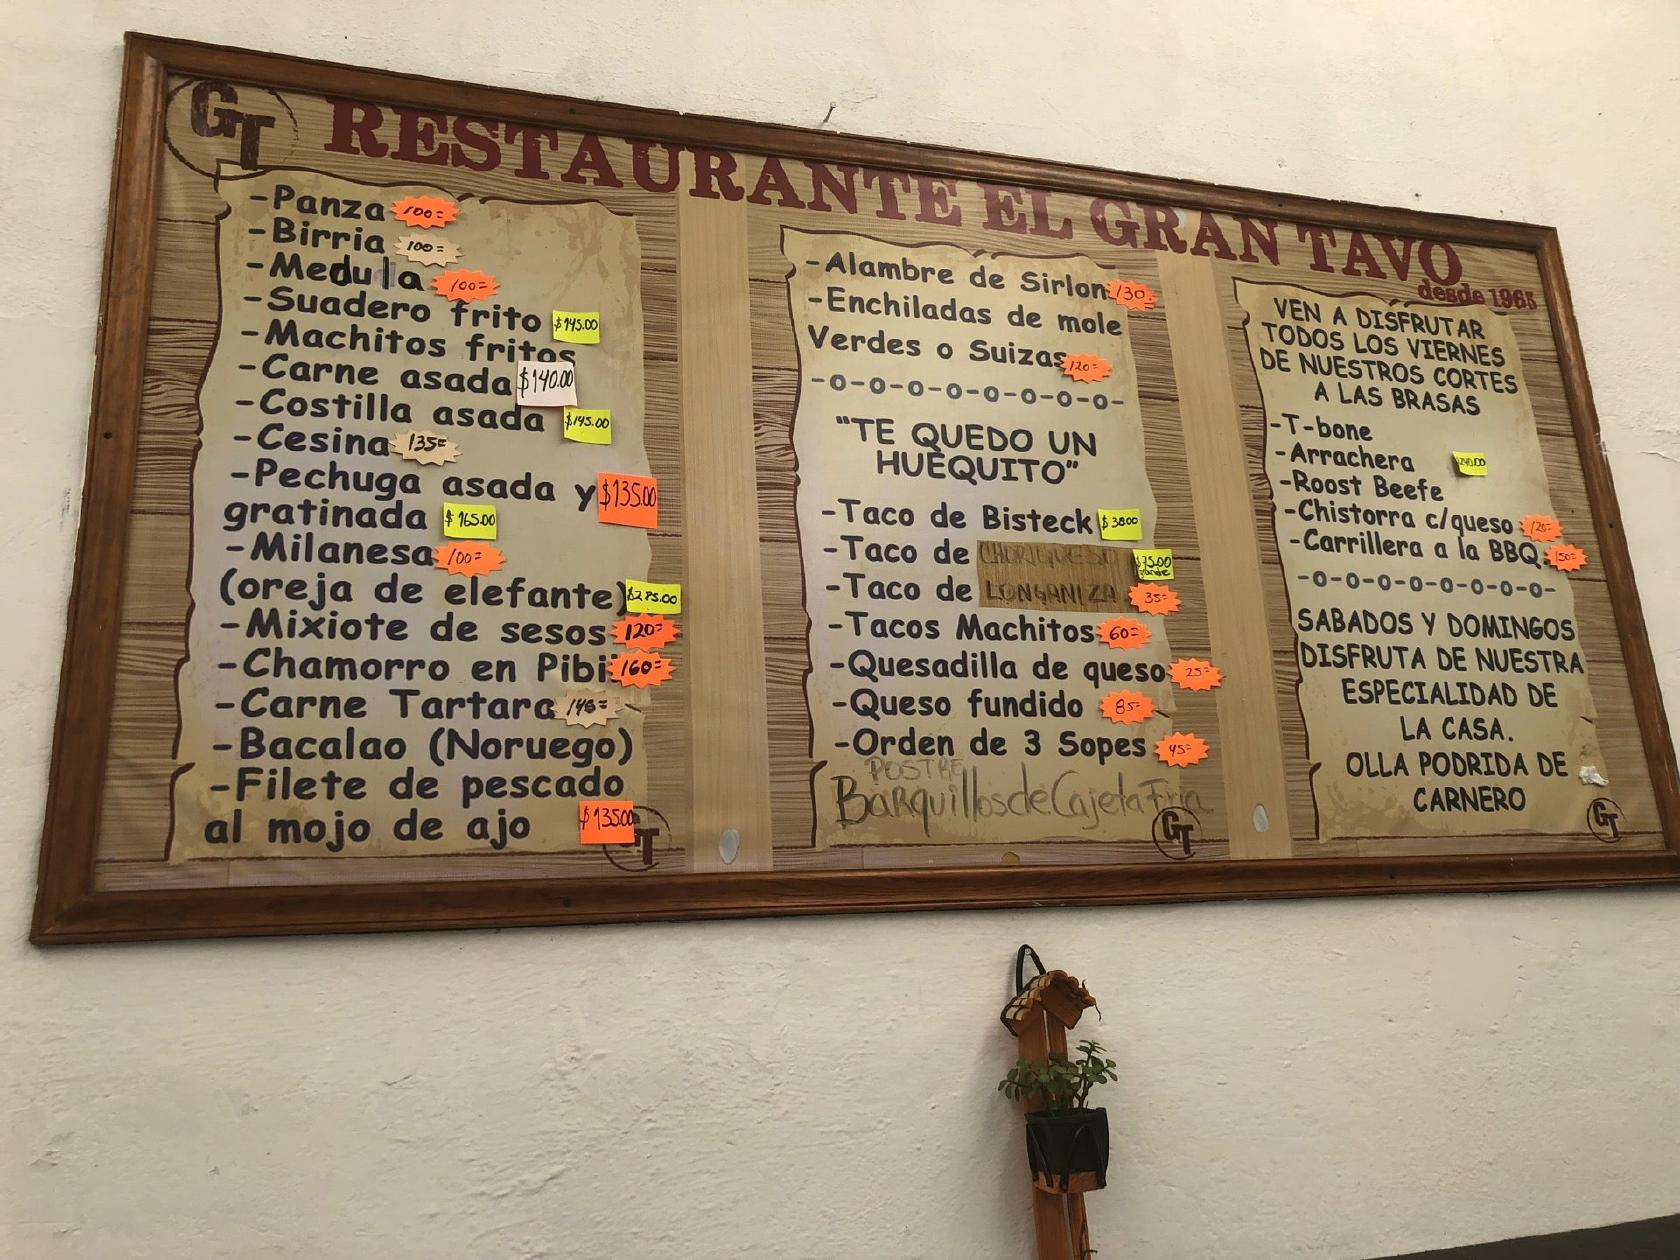 GT
RESTAURANTE EL GRAN TAVO
desde 1965
-Panza 100=
-Birria 100=
-Medula 100=
-Suadero frito $145.00
-Machitos fritos
-Carne asada $140.00
-Costilla asada $145.00
-Cesina 135=
-Pechuga asada y $135.00
gratinada $165.00
-Milanesa 100=
(oreja de elefante) $285.00
-Mixiote de sesos 120=
-Chamorro en Pibil 160=
-Carne Tartara 145=
-Bacalao (Noruego)
-Filete de pescado
al mojo de ajo $135.00
GT
-Alambre de Sirlon 130=
-Enchiladas de mole
Verdes o Suizas 120=
-o-o-o-o-o-o-o-o-
"TE QUEDO UN
HUEQUITO"
-Taco de Bisteck $38.00
-Taco de CHORIQUESO $75.00 grande
-Taco de LONGANIZA 35=
-Tacos Machitos 60=
-Quesadilla de queso 25=
-Queso fundido 85=
-Orden de 3 Sopes 45=
POSTRE
Barquillos de Cajeta Fria
GT
VEN A DISFRUTAR
TODOS LOS VIERNES
DE NUESTROS CORTES
A LAS BRASAS
-T-bone
-Arrachera
-Roost Beefe
-Chistorra c/queso 120=
-Carrillera a la BBQ 150=
-o-o-o-o-o-o-o-o-
SABADOS Y DOMINGOS
DISFRUTA DE NUESTRA
ESPECIALIDAD DE
LA CASA.
OLLA PODRIDA DE
CARNERO
GT